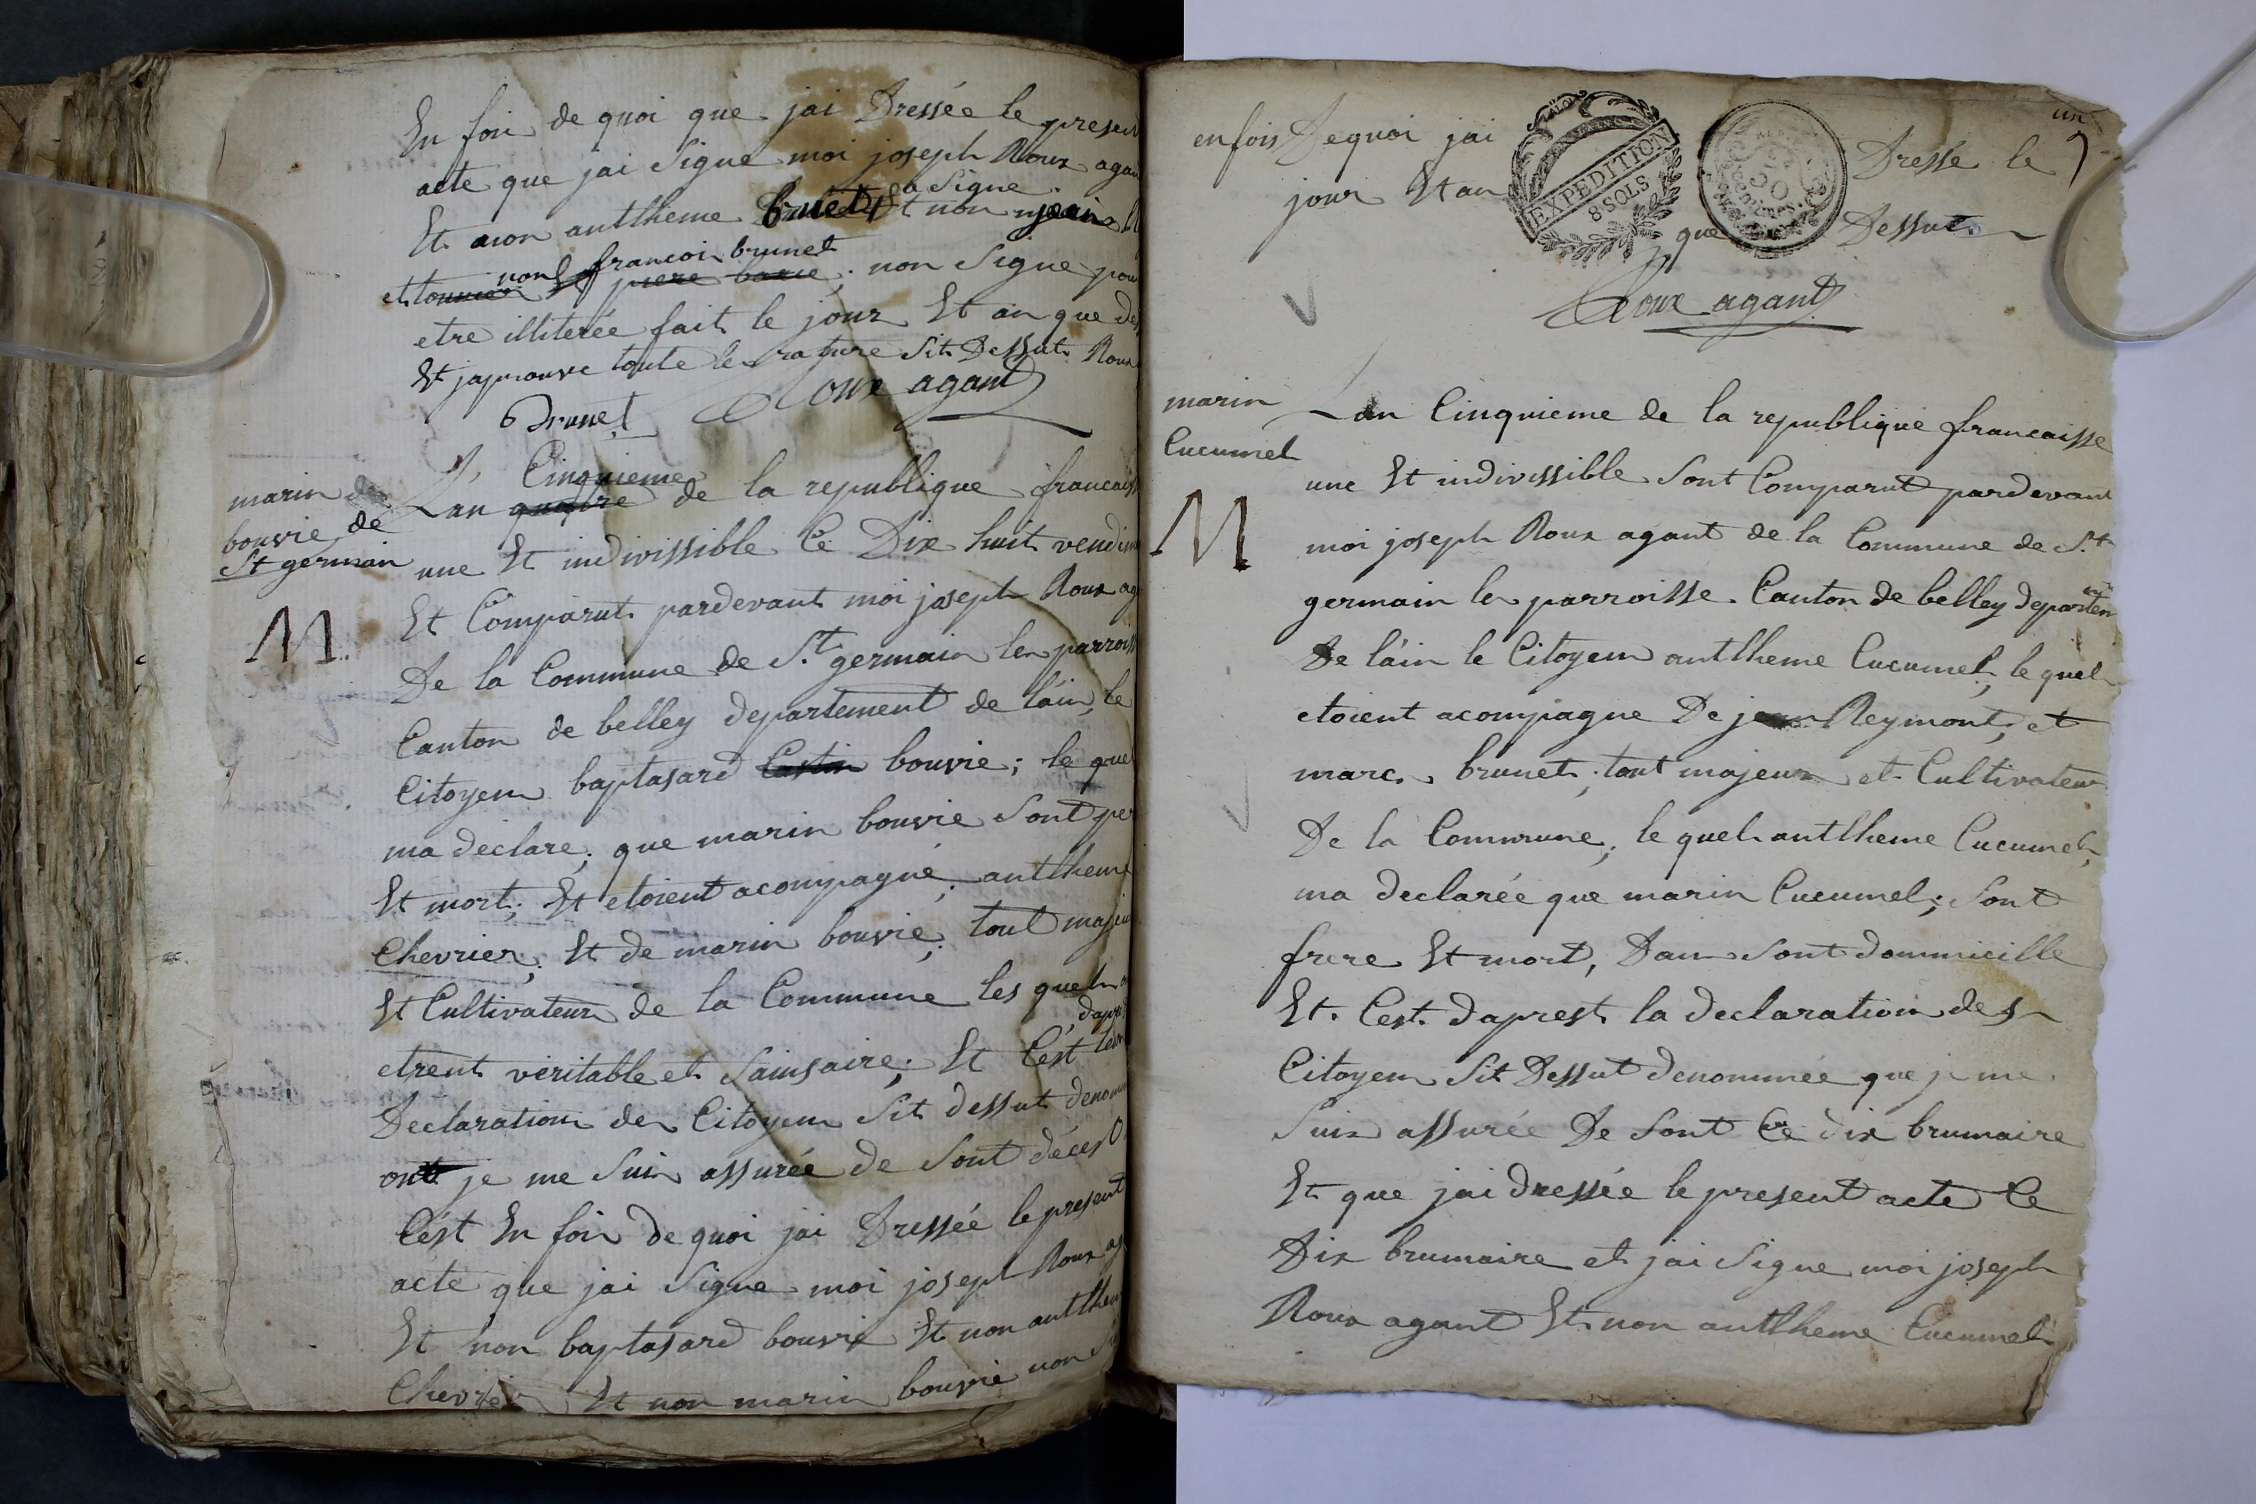 En foit de quoi que jai Dressée le present
acte que jai Signe moi joseph Roux agan
a Signe
Et non antlheme brunet Et non
non francoin brunet
et non Signe pour
etre illiterée fait le jour Et an que des
Et japrouve toute le rature Sit Dessut Roux
Brunet Roux agant
marin de
bouvie de
St germain
M
Cinquieme
Lan quatre de la republique francaisse
une Et indivissible Ce Dix huit vendim
Et Comparut pardevant moi joseph Roux ag
De la Commune de St germain les parroiss
Canton de belley departement de láin, le
Citoyen baptasard bouvie; le quel
ma declare; que marin bouvie Sont per
Et mort; Et etoient acompagné; antlheme
Chevrier; Et de marin bouvie; tout majeur
Et Cultivateur de la Commune les quels
dapr
etrent veritable et Sainsaire; Et Cést
Declaration des Citoyen Sit dessut denomm
ont je me Suis assurée de Sont déces
Cést En foit de quoi jai Dressée le present
acte que jai Signe moi joseph Roux ag
Et non baptasard bouvie Et non antlheme
Chevrier Et non marin bouvie non
un
7
enfois Dequoi jai Dressé le
jour Et an que Dessut
EXPEDITION
8 SOLS
Roux agant
marin
Cucumel
M
Lan Cinquieme de la republique francaisse
une Et indivissible Sont Comparut pardevant
moi joseph Roux agant de la Commune de St
germain les parroisse Canton de belley departem
De láin le Citoyen antlheme Cucumel; le quel
etoient acompagne De Reymont; et
marc brunet; tout majeur et Cultivateur
De la Commune; le quel antlheme Cucumel;
ma declarée que marin Cucumel; Sont
frere Et mort, Dans Sont dommicille
Et Cést daprest la declaration des
Citoyen Sit Dessut denommée que je me
Suis assurée De Sont Ce dix brumaire
Et que jai dressée le present acte Ce
Dix brumaire et jai Signe moi joseph
Roux agant Et non antlheme Cucumel